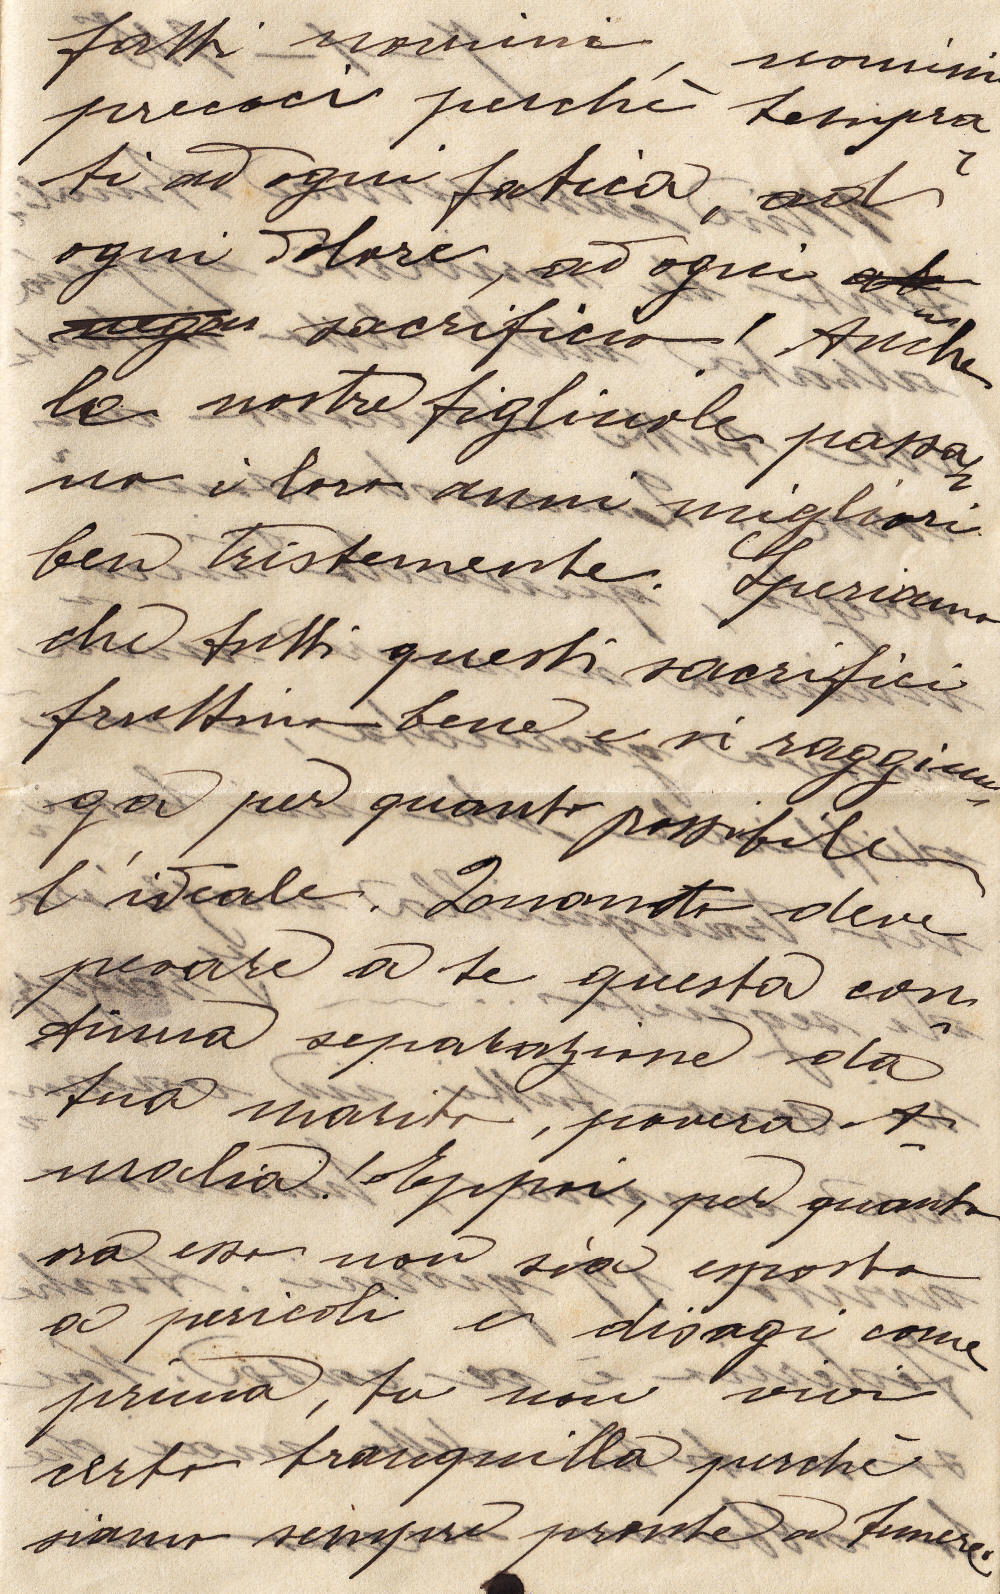 fatti uomini, uomini
precoci perchè tempra
ti ad ogni fatica, ad
ogni dolore, ad ogni
sacrificio! Anche
le nostre figliuole passa-
no i loro anni migliori
ben tristemente. Speriamo
che tutti questi sacrifici
fruttino bene e si raggiun-
ga per quanto possibile
l'ideale. Quanto deve
pesare a te questa con-
tinua separazione da
tuo marito, povera A-
malia! Eppoi, per quanto
ora esso non sia esposto
a pericoli e disagi come
prima, tu non vivi
certo tranquilla perchè
siamo sempre pronte a temere.